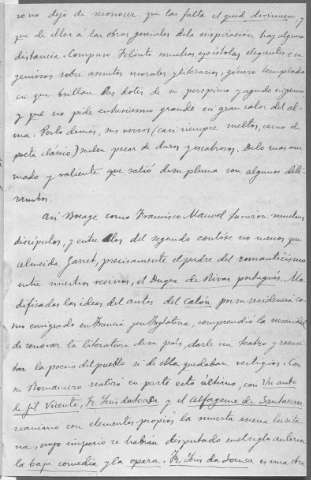 no dejó de reconocer que les falta el quid divinum y
que de ellos a las obras geniales de la inspiración hay alguna
distancia. Compuso Filinto muchas epístolas elegantes e in-
geniosas sobre asuntos morales y literarios, género templado
en que brillan las dotes de su peregrino y agudo ingenio
y que no pide entusiasmo grande ni gran calor del al-
ma. Por lo demás, sus versos (casi siempre sueltos, como el
poeta clásico) suelen pecar de duros y escabrosos. De lo más ani-
mado y valiente que salió de su pluma son algunos diti-
rambos.
Así Bocage como Francisco Manoel tuvieron muchos
discípulos, y entre los del segundo contóse no menos que
Almeida Garret, precisamente el padre del romanticismo
entre nuestros vecinos, el Duque de Rivas portugués. Mo-
dificadas las ideas del autor del Catón por su residencia co-
mo emigrado en Francia y en Inglaterra, comprendió la necesidad
de renovar la literatura de su país, darle un teatro y resuci-
tar la poesía del pueblo si de ella quedaban vestigios. Con
su Romancero realizó en parte esto último, con Un auto
de Gil Vicente, Fr. Luis de Sousa y el Alfageme de Santarem
reanimó con elementos propios la muerta escena lusita-
na, cuyo imperio se habían disputado en el siglo anterior
la baja comedia y la ópera. Fr. Luis da Sousa es una obra